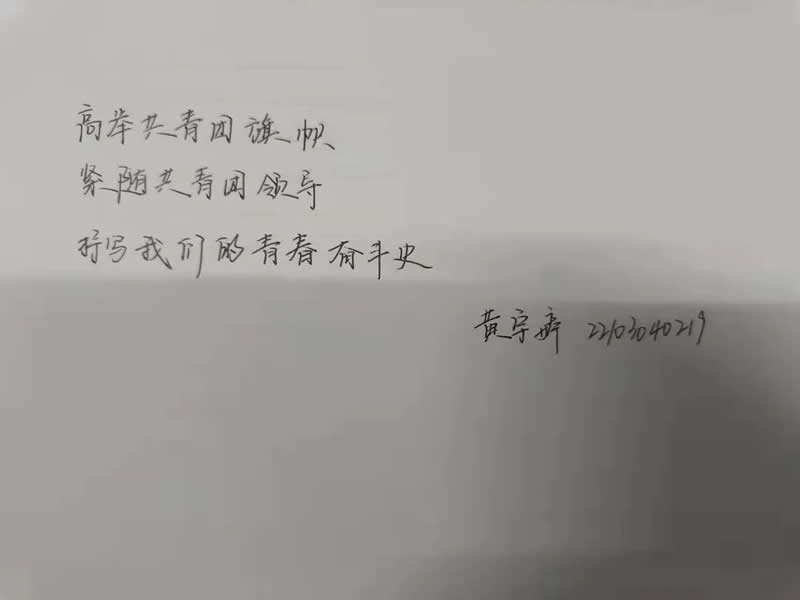 高举共青团旗帜
紧随共青团领导
抒写我们的青春奋斗史
黄宇婷 2203040219